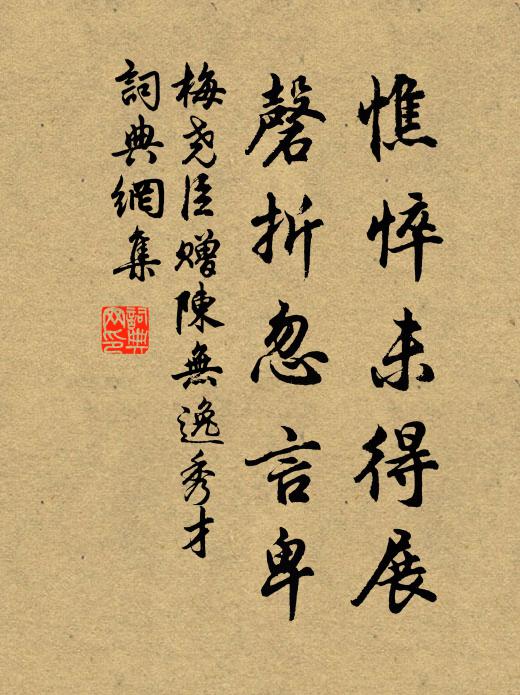 憔悴未得展
磬折忽言卑
梅尧臣赠陳無逸秀才
詞典網集
詞典网印